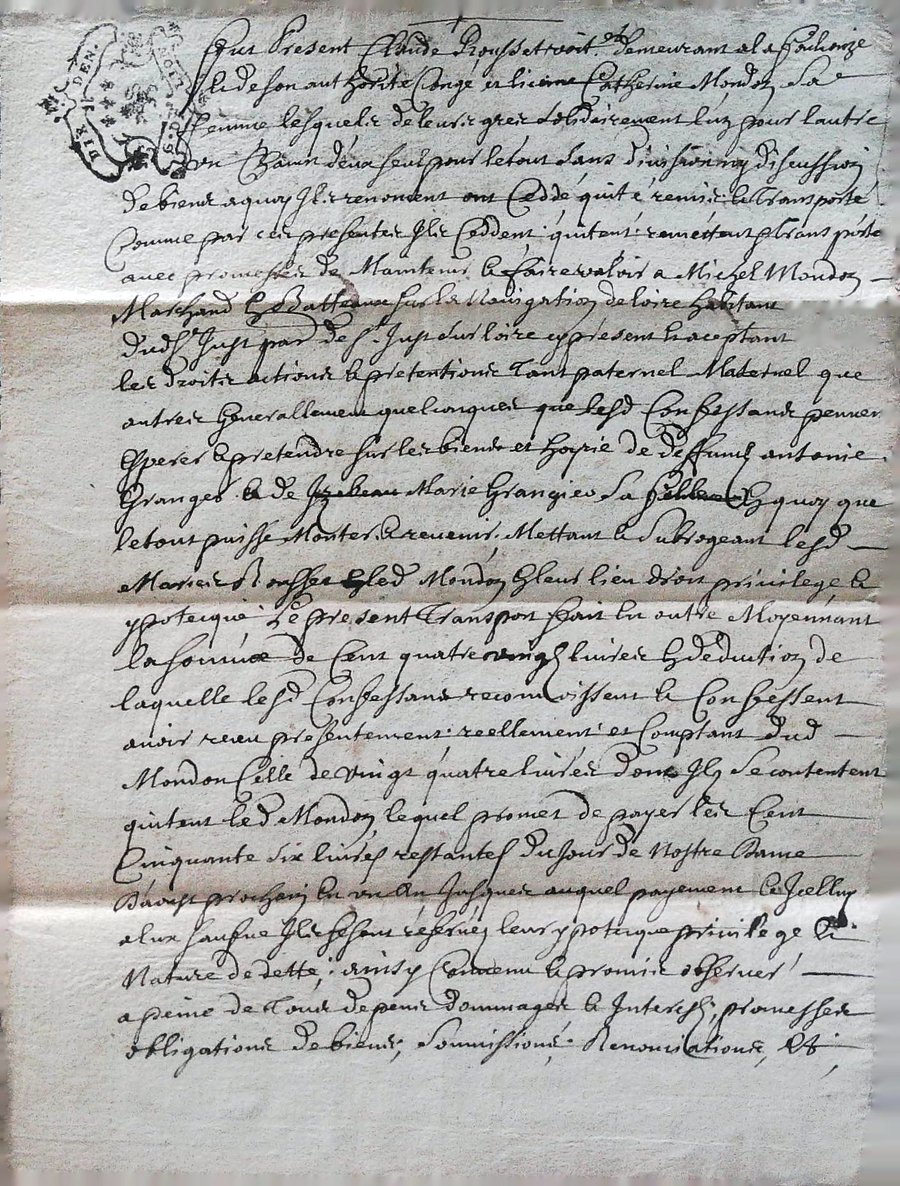 Fut Present Claude Rousset voit.er demeurant a la
et de son authorité Congé et licence Catherine Mondon Sa
femme lesquels de leurs grez solidairement l'un pour l'autre
un Chacun d'eux seul pour le tout sans division ny discussion
de biens a quoy Ils renoncent ont Ceddé quité remis & Transporté
Comme par ces presentes Ils Ceddent quitent remettent & transporte
avec promesses de Maintenir & faire valoir a Michel Mondon
Marchand Batteaux sur la Navigation de loire habitant
dud St Just par de St Just sur loire cy present & aceptant
les droits actions & pretentions Tant paternel Maternel que
autres Generallement quelconques que lesd Confessans peuvent
Esperer & pretendre sur les biens et hoyrie de deffunct antoine
Granger & de Marie Grangier Sa a quoy que
le tout puisse Monter & revenir. Mettant & Subrogeant lesd
Mariés Rousset led Mondon leur lieu droit privilege &
ypotecque. Le present Transport fait en outre Moyennant
la somme de Cent quatre vingt livres deduction de
laquelle lesd Confessans reconnoissent & Confessent
avoir receu presentement reellement et Comptant dud
Mondon Celle de vingt quatre livres dont Ils se contentent
quitent led Mondon, lequel promet de payer les Cent
Cinquante six livres restantes du Jour de Nostre Dame
D'aoust prochain en un an Jusques auquel payement & Icelluy
Ils se sont reservez leurs ypotecque privilege &
Nature de dette; ainsy Convenu & promis observer
a peine de Tous depens dommages & Interests, promesses
obligations de biens, Soumissions, Renonciations, &